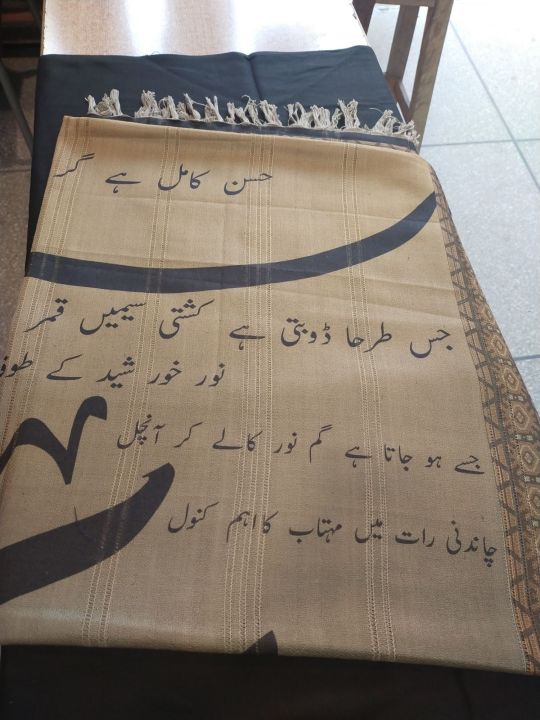 حسن کامل ہے گر
جس طرحا ڈوبتی ہے کشتی سیمیں قمر
نور خور شید کے
جسے ہو جاتا ہے گم نور کالے کر آنچل
چاندنی رات میں مہتاب کا اہم کنول